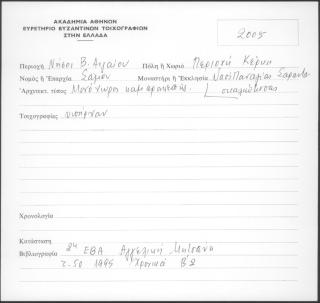 ΑΚΑΔΗΜΙΑ ΑΘΗΝΩΝ
ΕΥΡΕΤΗΡΙΟ ΒΥΖΑΝΤΙΝΩΝ ΤΟΙΧΟΓΡΑΦΙΩΝ
ΣΤΗΝ ΕΛΛΑΔΑ
2005
Περιοχή Νήσοι Β. Αιγαίου Πόλη ή Χωριό Περιοχή Κέρκη
Νομός ή Ἐπαρχία Σάμου Μοναστήρι ή Ἐκκλησία Ναός Παναγίας Σαραντα
Ἀρχιτεκτ. τύπος Μονόχωρος καμαροσκεπής σκαλιώτισσας
Τοιχογραφίες υπήρχαν
Χρονολογία
Κατάσταση
Βιβλιογραφία 2η ΕΒΑ Αγγελική
τ. 50 1995 Χρονικά Β'2